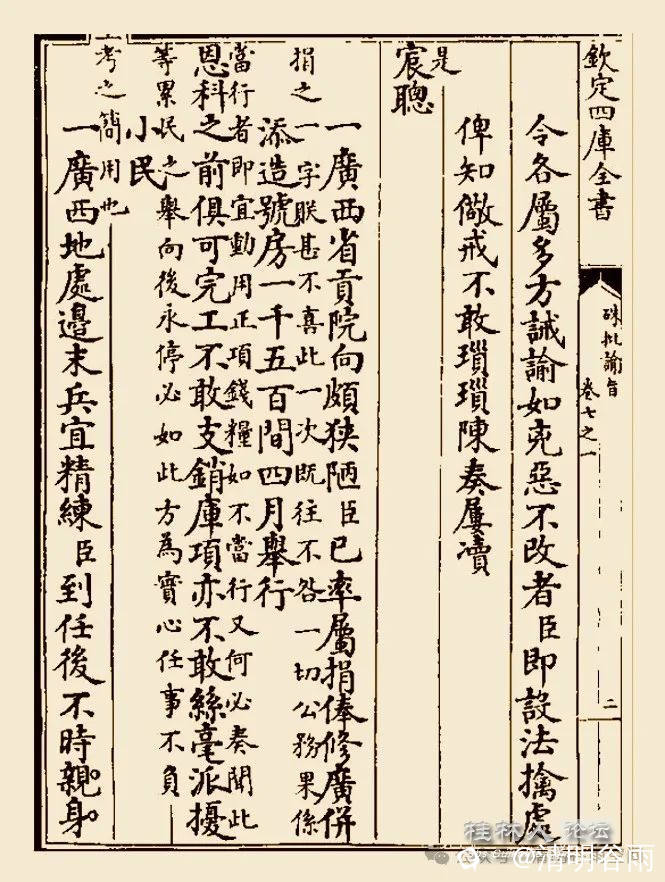 欽定四庫全書
硃批諭旨
卷七之一
二
令各屬多方誡諭如兇惡不改者臣即設法擒處
俾知儆戒不敢瑣瑣陳奏屢瀆
宸聰
是
一廣西省貢院向頗狹陋臣已率屬捐俸修廣併
捐之一字朕甚不喜此一次既往不咎一切公務果係
添造號房一千五百間四月舉行
當行者即宜動用正項錢糧如不當行又何必奏聞此
恩科之前俱可完工不敢支銷庫項亦不敢絲毫派擾
等累民之舉向後永停必如此方為實心任事不負
小民
考之簡用也
一廣西地處邊末兵宜精練臣到任後不時親身
桂林人 论坛
@清明谷雨